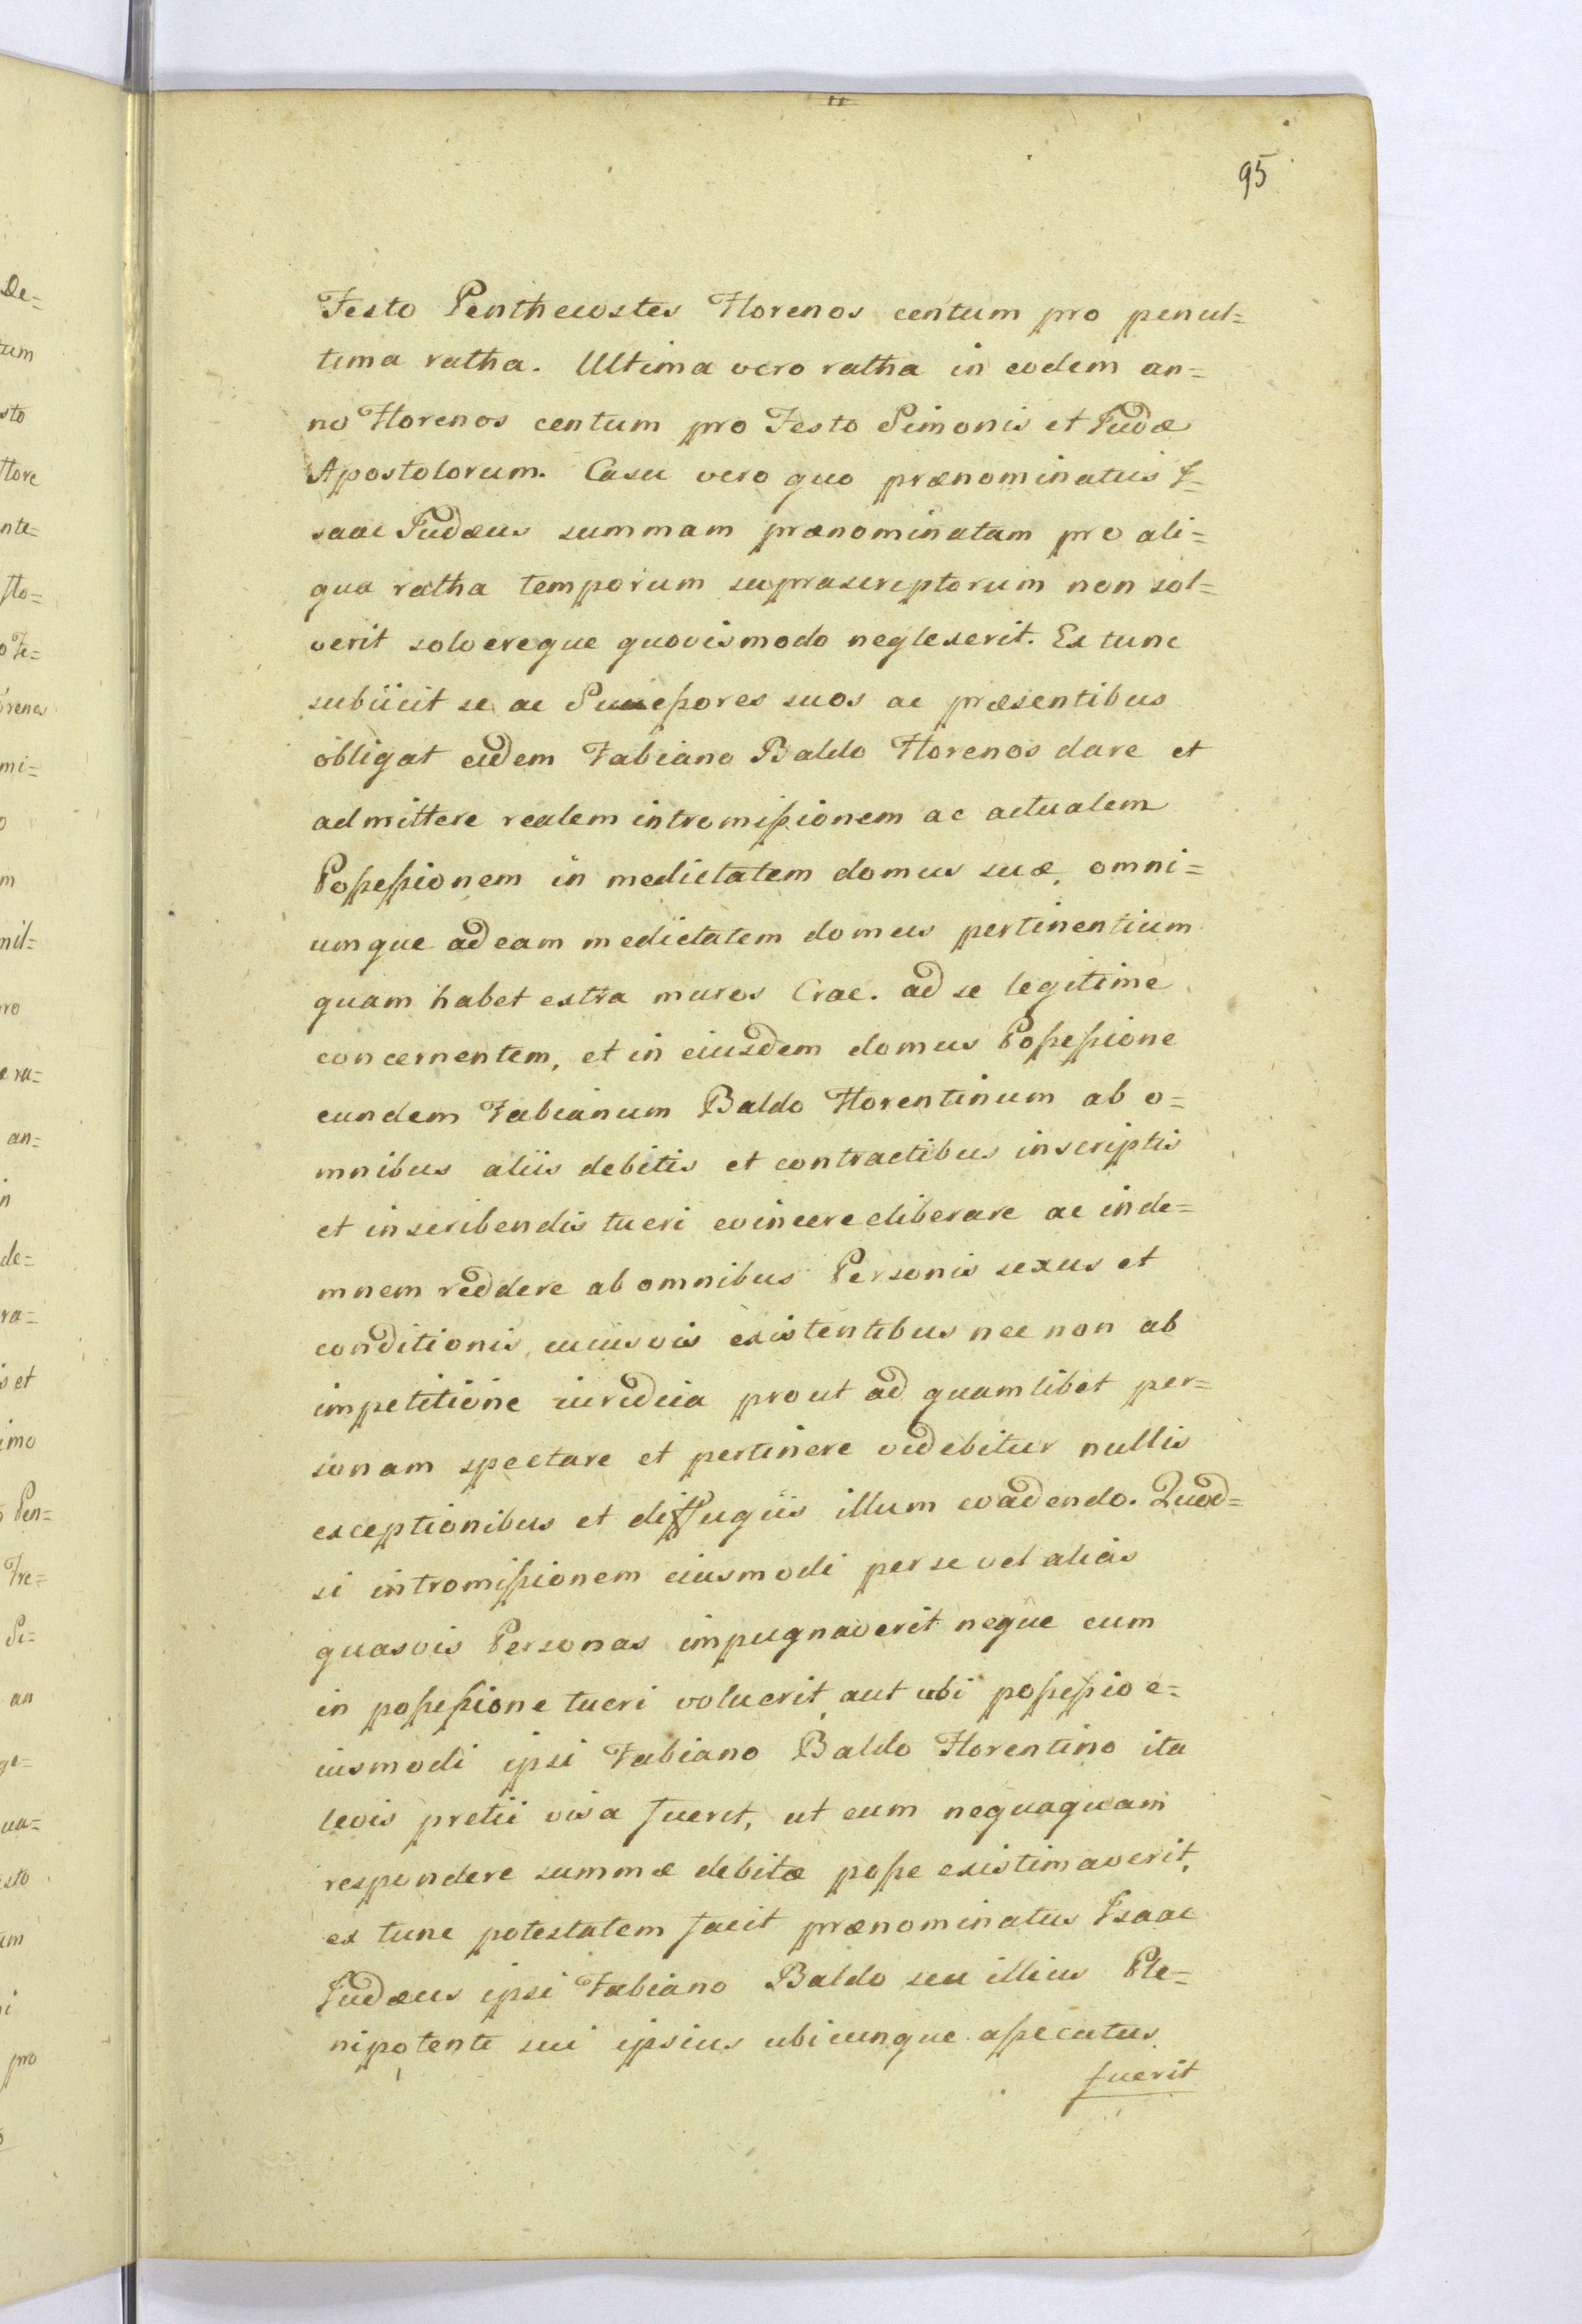 95
Festo Penthecostes Florenos centum pro penul=
tima ratha. Ultima vero ratha in eodem an=
no Florenos centum pro Festo Simonis et Judæ
Apostolorum. Casu vero quo prænominatus I=
saac Judæus summam prænominatam pro ali=
qua ratha temporum suprascriptorum non sol=
verit solvereque quovismodo neglexerit. Ex tunc
subiicit se ac Successores suos ac præsentibus
obligat eidem Fabiano Baldo Florenos dare et
admittere realem intromissionem ac actualem
Possessionem in medietatem domus suæ, omni=
umque ad eam medietatem domus pertinentium
quam habet extra muros Crac. ad se legitime
concernentem, et in eiusdem domus Possessione
eundem Fabianum Baldo Florentinum ab o=
mnibus aliis debitis et contractibus inscriptis
et inscribendis tueri evincere eliberare ac inde=
mnem reddere ab omnibus Personis sexus et
conditionis, cuiusvis existentibus nec non ab
impetitione iuridica prout ad quamlibet per=
sonam spectare et pertinere videbitur nullis
exceptionibus et diffugiis illum evadendo. Quod=
si intromissionem eiusmodi per se vel alias
quasvis Personas impugnaverit neque eum
in possessione tueri voluerit, aut ubi possessio e=
iusmodi ipsi Fabiano Baldo Florentino ita
levis pretii visa fuerit, ut eum nequaquam
respondere summæ debitæ posse existimaverit,
ex tunc potestatem facit prænominatus Isaac
Judæus ipsi Fabiano Baldo seu illius Ple=
nipotente sui ipsius ubicunque assecutus
fuerit